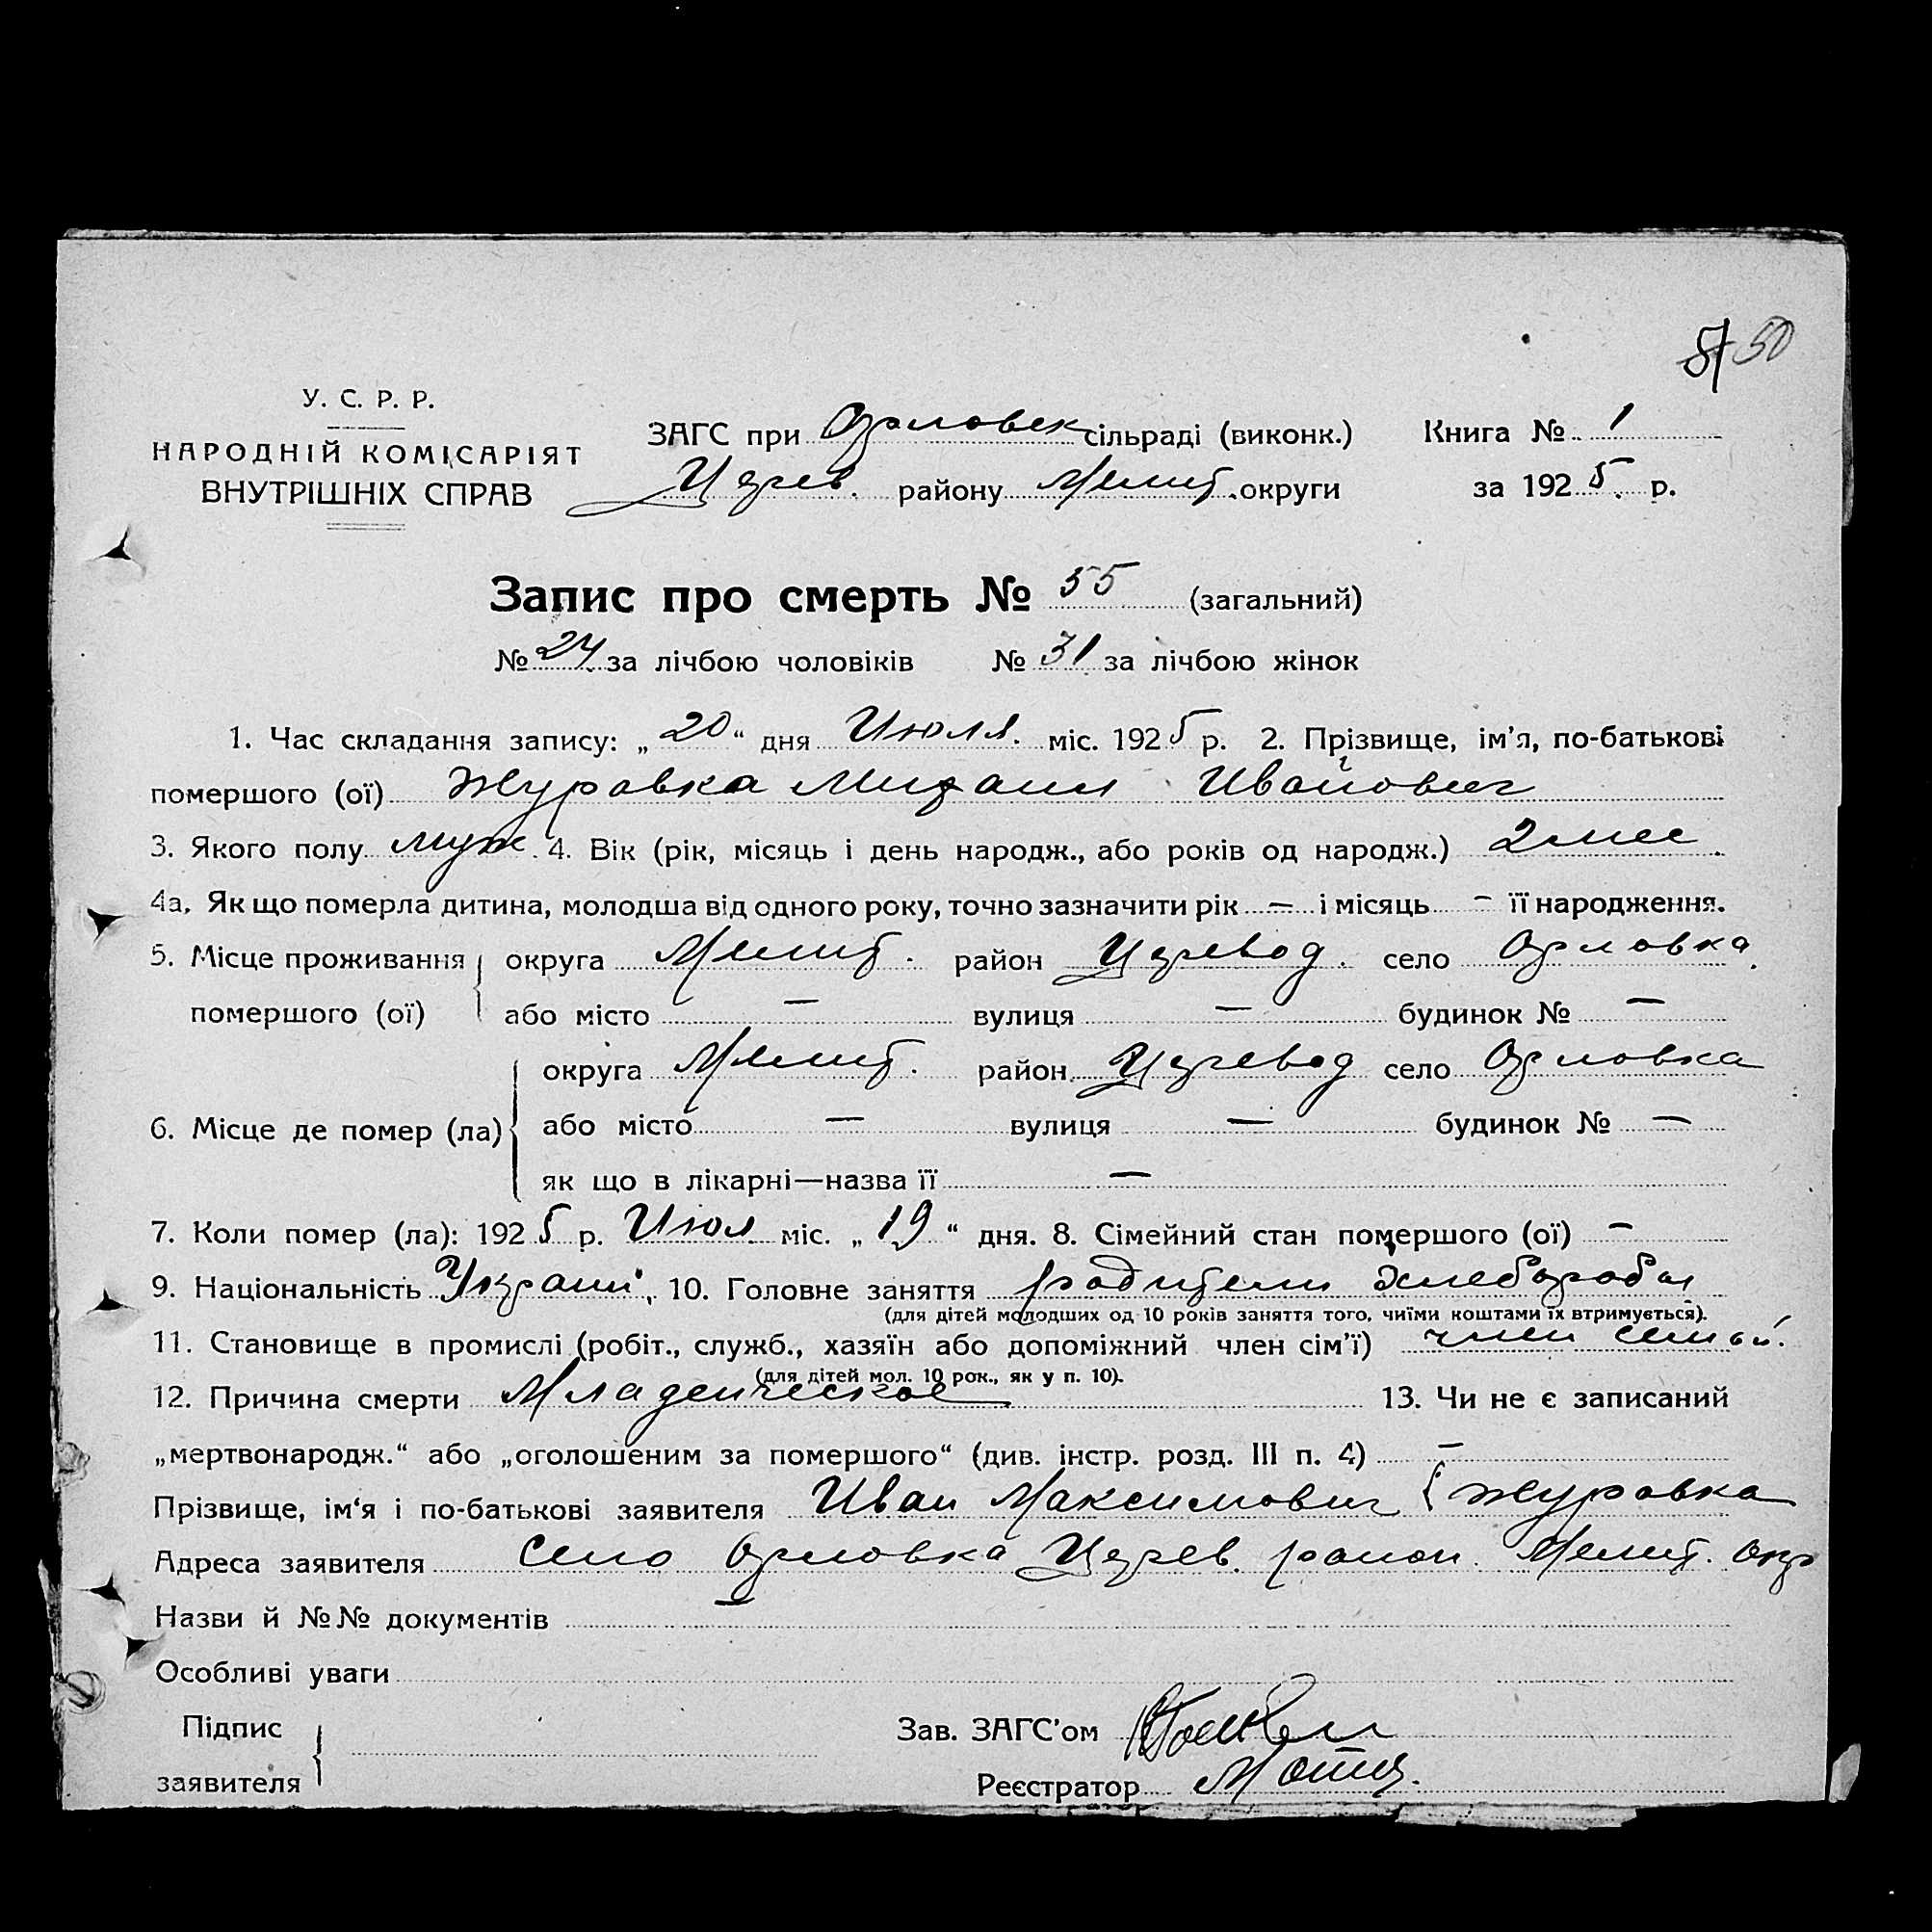 51 50
У. С. Р. Р.
НАРОДНІЙ КОМІСАРІЯТ
ВНУТРІШНІХ СПРАВ
ЗАГС при Орловск сільраді (виконк.)
Цэрев. району Мелит. округи
Книга № 1
за 1925 р.
Запис про смерть № 55 (загальний)
№ 24 за лічбою чоловіків № 31 за лічбою жінок
1. Час складання запису: „20“ дня Июля. міс. 1925 р. 2. Прізвище, ім'я, по-батькові
помершого (ої) Журавка Михаил Иванович
3. Якого полу муж. 4. Вік (рік, місяць і день народж., або років од народж.) 2 мес.
4а. Як що померла дитина, молодша від одного року, точно зазначити рік — і місяць — її народження.
5. Місце проживання округа Мелит. район Цэревод. село Орловка.
помершого (ої) або місто — вулиця — будинок № —
округа Мелит. район Цэревод село Орловка
6. Місце де помер (ла) або місто — вулиця — будинок № —
як що в лікарні—назва її —
7. Коли помер (ла): 1925 р. Июл міс. „19“ дня. 8. Сімейний стан помершого (ої) —
9. Національність Украин. 10. Головне заняття родители хлеборобы
(для дітей молодших од 10 років заняття того, чиїми коштами їх втримується).
11. Становище в промислі (робіт., служб., хазяїн або допоміжний член сім'ї) член семьи.
(для дітей мол. 10 рок., як у п. 10).
12. Причина смерти Младенческое 13. Чи не є записаний
„мертвонародж.“ або „оголошеним за помершого“ (див. інстр. розд. III п. 4) —
Прізвище, ім‘я і по-батькові заявителя Иван Максимович Журавка
Адреса заявителя Село Орловка Цэрев. район. Мелит. окр
Назви й №№ документів —
Особливі уваги
Підпис
заявителя
Зав. ЗАГС'ом
Реєстратор